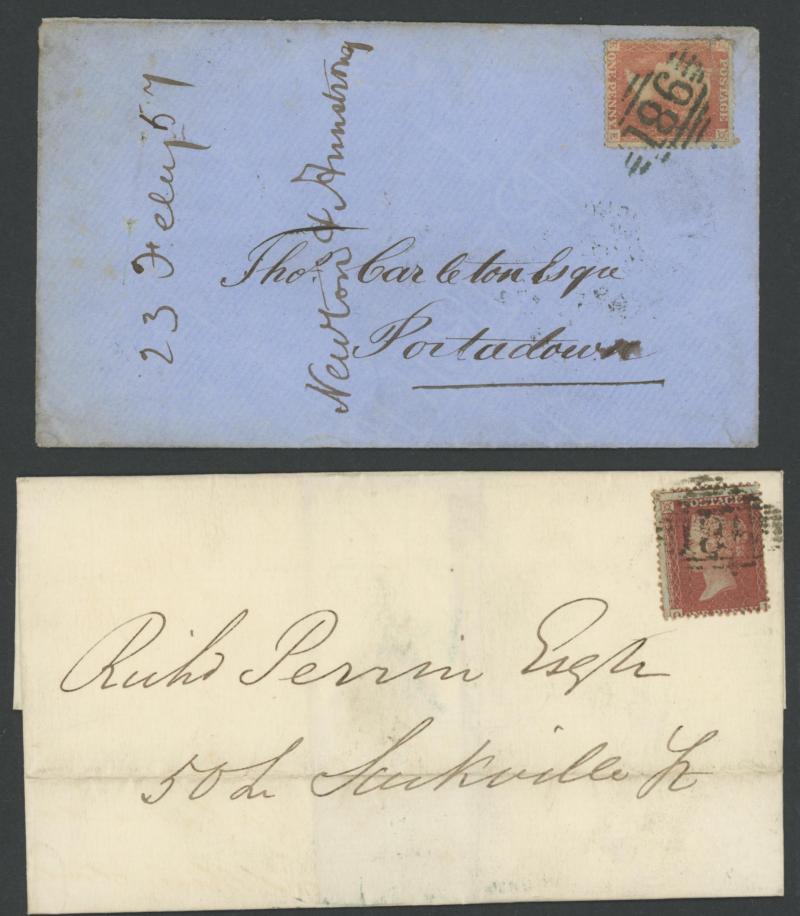 23 Feby 57
Newton & Armstrong
POSTAGE
ONE PENNY
186
Thos. Carleton Esqre
Portadown
POSTAGE
18
Richd Perrin Esqre
50 Lr Sackville St